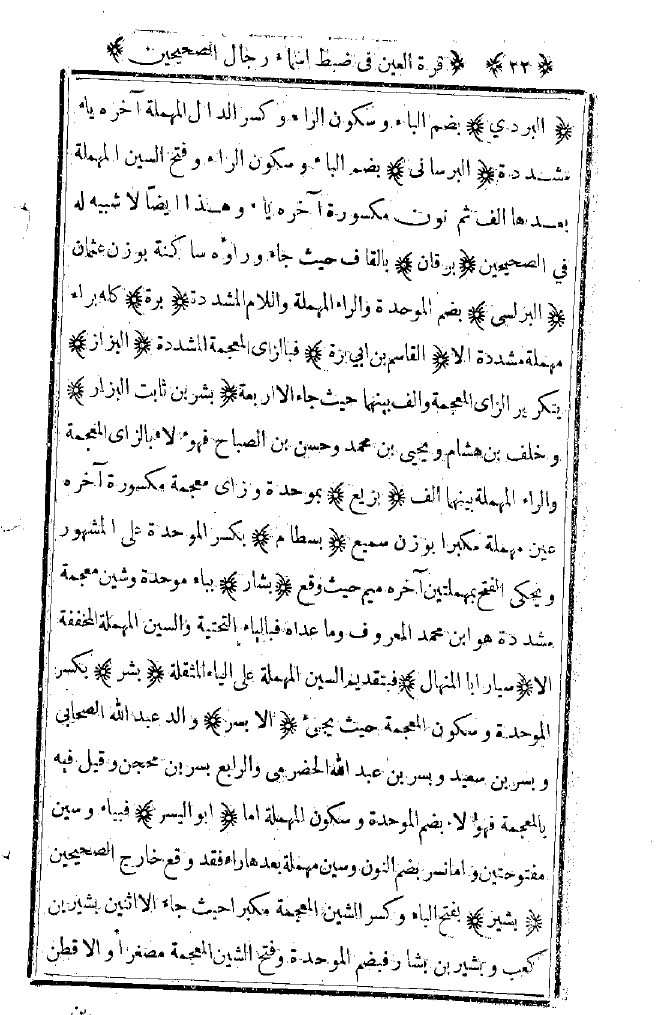 ﴿ ٢٣ ﴾ ﴿ قرة العين فى ضبط اسماء رجال الصحيحين ﴾
﴿ البردي ﴾ بضم الباء وسكون الراء وكسر الدال المهملة آخره ياء
مشددة ﴿ البرسانى ﴾ بضم الباء وسكون الراء وفتح السين المهملة
بعدها الف ثم نون مكسورة آخره ياء وهذا ايضا لا شبيه له
في الصحيحين ﴿ برقان ﴾ بالقاف حيث جاء وراؤه ساكنة بوزن عثمان
﴿ البرلسى ﴾ بضم الموحدة والراء المهملة واللام المشددة ﴿ برة ﴾ كله براء
مهملة مشددة الا ﴿ القاسم بن ابي بزة ﴾ فبالزاى المعجمة المشددة ﴿ البزاز ﴾
بتكرير الزاى المعجمة والف بينهما حيث جاء الا اربعة ﴿ بشر بن ثابت البزار ﴾
وخلف بن هشام ويحيى بن محمد وحسن بن الصباح فهولاء بالزاى المعجمة
والراء المهملة بينهما الف ﴿ بزيع ﴾ بموحدة وزاى معجمة مكسورة آخره
عين مهملة مكبرا بوزن سميع ﴿ بسطام ﴾ بكسر الموحدة على المشهور
ويحكى الفتح بمهملتين آخره ميم حيث وقع ﴿ بشار ﴾ بباء موحدة وشين معجمة
مشددة هو ابن محمد المعروف وما عداه فبالياء التحتية والسين المهملة المخففة
الا ﴿ سيار ابا المنهال ﴾ فبتقديم السين المهملة على الياء المثقلة ﴿ بشر ﴾ بكسر
الموحدة وسكون المعجمة حيث يجئ ﴿ الا بسر ﴾ والد عبد الله الصحابي
وبسر بن سعيد وبسر بن عبد الله الحضرمي والرابع بسر بن محجن وقيل فيه
بالمعجمة فهؤلاء بضم الموحدة وسكون المهملة اما ﴿ ابو اليسر ﴾ فبياء وسين
مفتوحتين واما نسر بضم النون وسين مهملة بعدها راء فقد وقع خارج الصحيحين
﴿ بشير ﴾ بفتح الباء وكسر الشين المعجمة مكبرا حيث جاء الا اثنين بشير بن
كعب وبشير بن بشار فبضم الموحدة وفتح الشين المعجمة مصغرا والا قطن